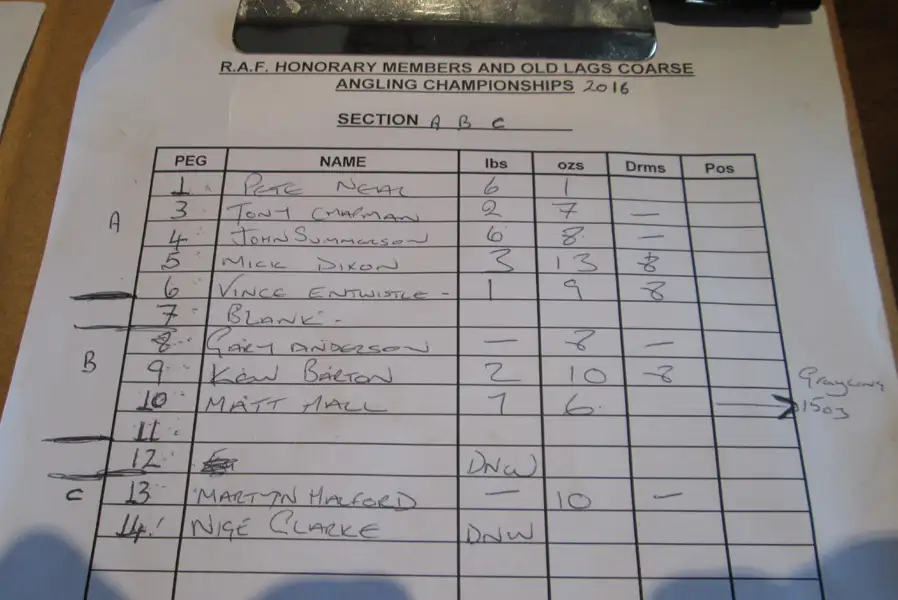 R.A.F. HONORARY MEMBERS AND OLD LAGS COARSE
ANGLING CHAMPIONSHIPS 2016
SECTION A B C
PEG NAME lbs ozs Drms Pos
1 PETE NEAL 6 1
A 3 TONY CHAPMAN 2 7 —
4 JOHN SUMMERSON 6 8 —
5 MICK DIXON 3 13 8
6 VINCE ENTWISTLE - 1 9 8
7 BLANK -
8 GARY ANDERSON — 8 —
B 9 KEN BARTON 2 10 8
Grayling
10 MATT HALL 1 6 → 1503
11
12 DNW
C 13 MARTYN HALFORD — 10 —
14 NIGE CLARKE DNW